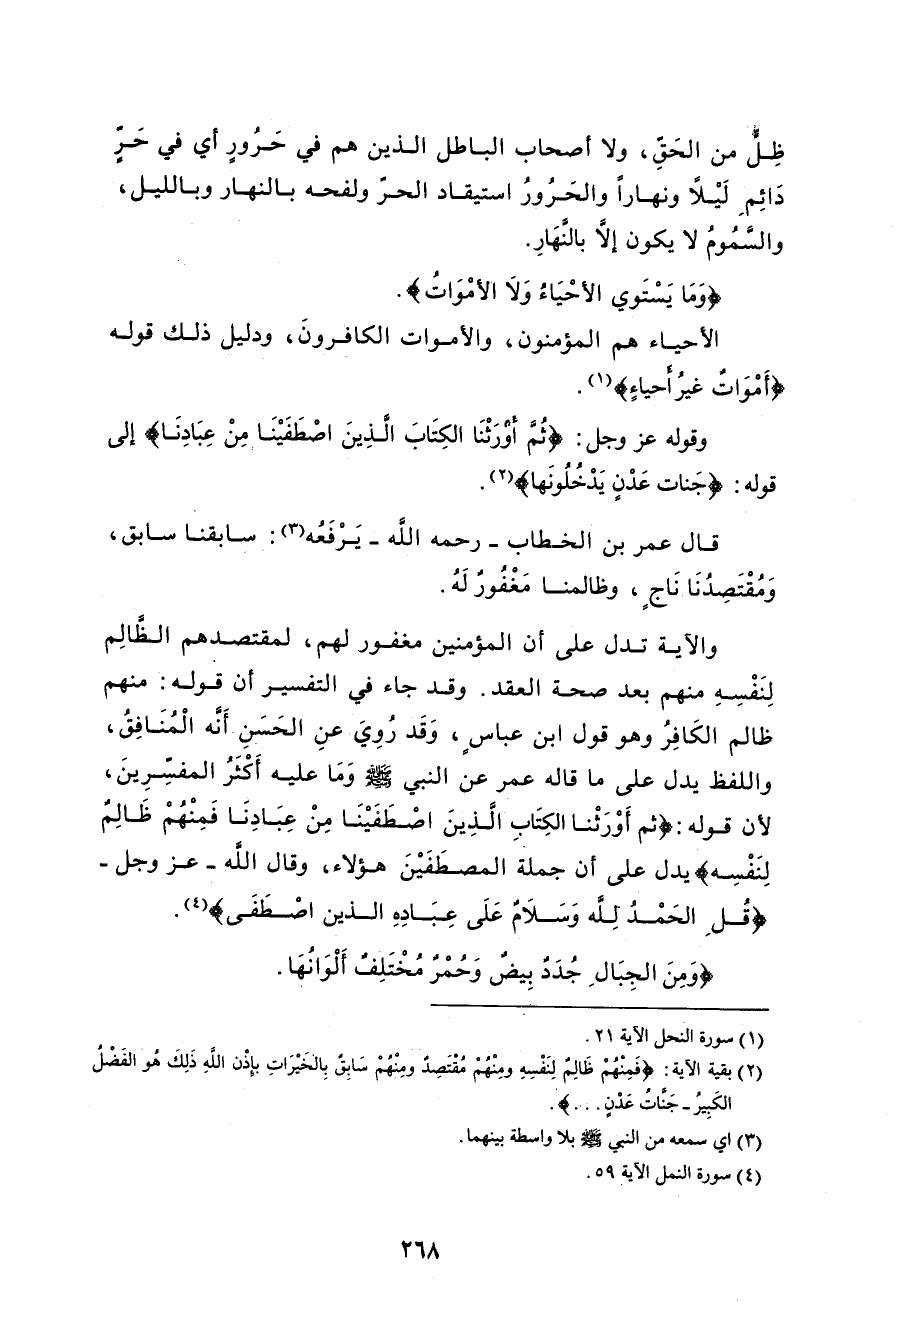 ظِلٌّ من الحَقِّ، ولا أصحاب الباطل الذين هم في حَرُورٍ أي في حَرٍّ
دَائِمٍ لَيْلاً ونهاراً والحَرُورُ استيقاد الحرّ ولفحه بالنهار وبالليل،
والسَّمُومُ لا يكون إلَّا بالنَّهَارِ.
﴿وَمَا يَسْتَوي الأحْيَاءُ وَلَا الأمْوَاتُ﴾.
الأحياء هم المؤمنون، والأموات الكافرونَ، ودليل ذلك قوله
﴿أَمْوَاتٌ غيرُ أَحياءٍ﴾(١).
وقوله عز وجل: ﴿ثُمَّ أَوْرَثْنَا الكِتَابَ الَّذِينَ اصْطَفَيْنَا مِنْ عِبَادِنَا﴾ إلى
قوله: ﴿جَنات عَدْنٍ يَدْخُلُونَها﴾(٢).
قال عمر بن الخطاب ـ رحمه اللَّه ـ يَرْفَعُه(٣): سابقنا سابق،
وَمُقْتَصِدُنَا نَاجٍ، وظالمنا مَغْفُورٌ لَهُ.
والآية تدل على أن المؤمنين مغفور لهم، لمقتصدهم الظَّالِم
لِنَفْسِهِ منهم بعد صحة العقد. وقد جاء في التفسير أن قوله: منهم
ظالم الكَافِرُ وهو قول ابن عباسٍ، وَقَد رُوِيَ عنِ الحَسَنِ أنَّه الْمُنَافِقُ،
واللفظ يدل على ما قاله عمر عن النبي ﷺ وَمَا عليه أَكْثَرُ المفسِّرِينَ،
لأن قوله: ﴿ثم أَوْرَثْنا الكِتَابِ الَّذِينَ اصْطَفَيْنَا مِنْ عِبَادِنَا فَمِنْهُمْ ظَالِمٌ
لِنَفْسِه﴾ يدل على أن جملة المصطَفَيْنَ هؤلاء، وقال اللَّه ـ عز وجل ـ
﴿قُلِ الحَمْدُ لِلَّه وَسَلَامٌ عَلَى عِبَادِهِ الذين اصْطَفَى﴾(٤).
﴿وَمِنَ الجِبَالِ جُدَدٌ بِيضٌ وَحُمْرٌ مُخْتَلِفٌ أَلْوَانُهَا.
(١) سورة النحل الآية ٢١.
(٢) بقية الآية: ﴿فَمِنْهُمْ ظَالِمٌ لِنَفْسِهِ ومِنْهُمْ مُقْتَصِدٌ ومِنْهُمْ سَابِقٌ بِالخَيْرَاتِ بإِذْنِ اللَّهِ ذَلِكَ هُو الفَضْلُ
الكَبِيرُ ـ جَنَّاتُ عَدْنٍ . . . .﴾.
(٣) اي سمعه من النبي ﷺ بلا واسطة بينهما.
(٤) سورة النمل الآية ٥٩.
٢٦٨